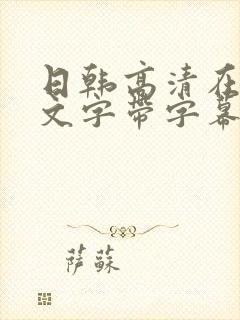 日韩高清在
文字带字幕
萨蘇